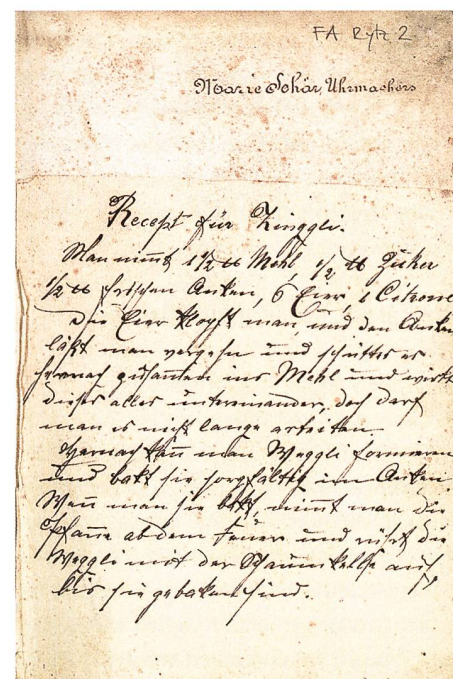 FA Rytz 2
Marie Schär, Uhrmachers
Recept für Ringgli.
Man nimt 1 1/2 ℔ Mehl, 1/2 ℔ Zucker
1/2 ℔ frischen Anken, 6 Eier, 1 Citrone
Die Eier klopft man, und den Anken
läßt man vergehn und schüttis es
hernach zusamen ins Mehl und wirkt
dieses alles untereinander, doch darf
man es nicht lange arbeiten.
Hernach kan man Weggli formieren
und bakt sie sorgfältig im Anken
Wen man sie bakt, nimmt man die
Pfane ab dem Feuer und rührt die
Weggli mit der Schaumkelle auf
bis sie gebaken sind.